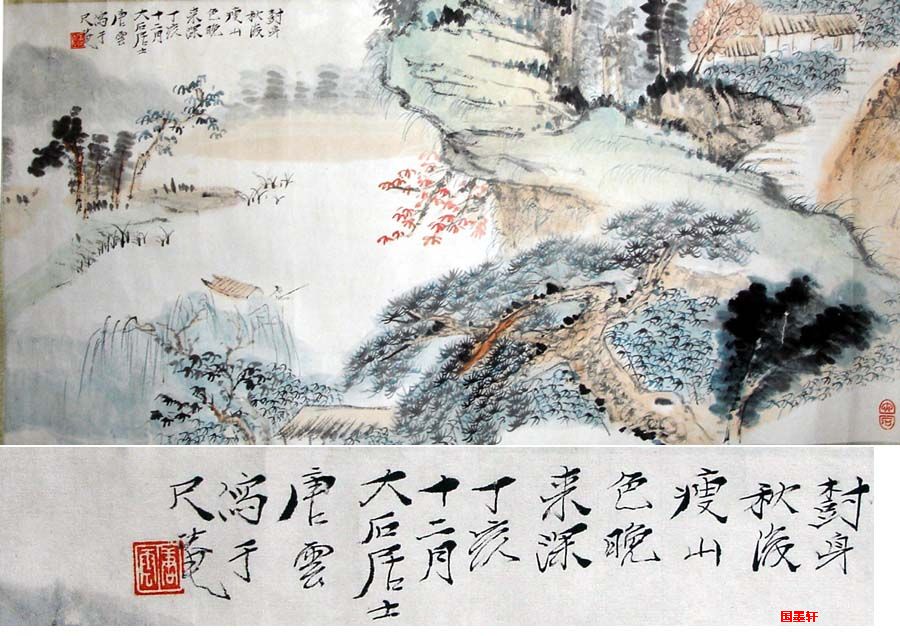 樹身
秋後
瘦山
色晚
来深
丁亥
十二月
大石居士
唐雲
寫于
尺庵
樹身
秋後
瘦山
色晚
来深
丁亥
十二月
大石居士
唐雲
寫于
尺庵
唐雲
国墨轩